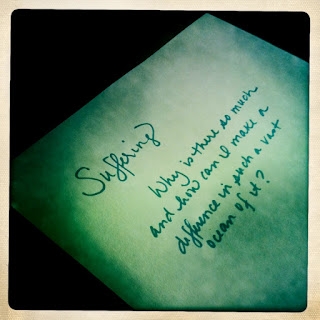 Suffering
Why is there so much
and how can I make a
difference in such a vast
ocean of it?